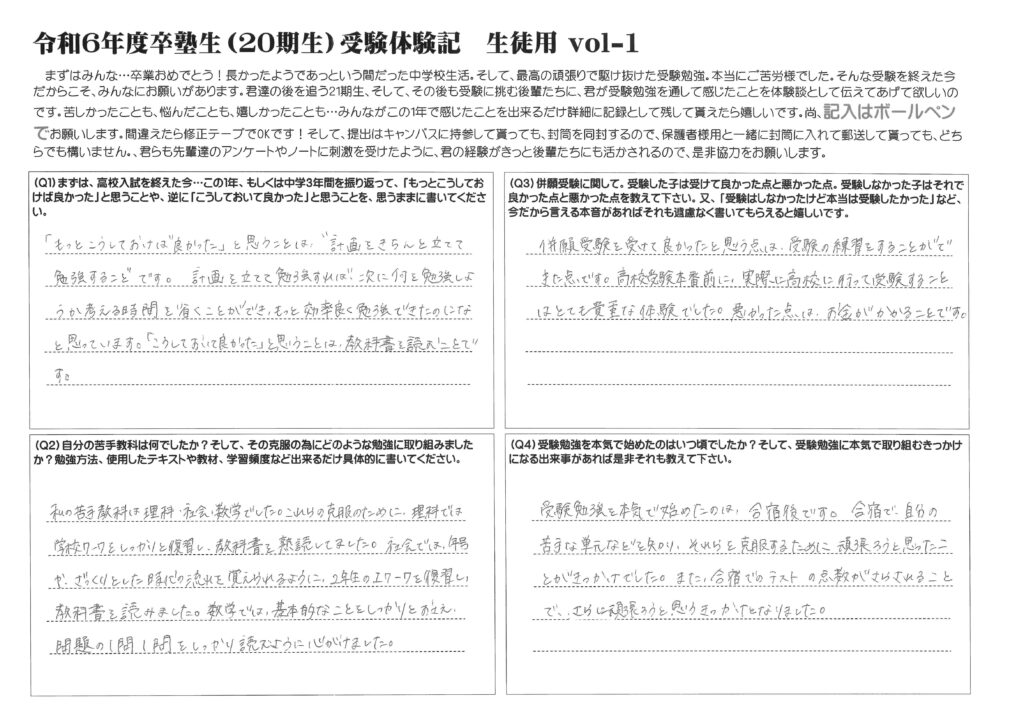 令和6年度卒塾生(20期生)受験体験記 生徒用 vol-1
まずはみんな…卒業おめでとう!長かったようであっという間だった中学校生活。そして、最高の頑張りで駆け抜けた受験勉強。本当にご苦労様でした。そんな受験を終えた今
だからこそ、みんなにお願いがあります。君達の後を追う21期生、そして、その後も受験に挑む後輩たちに、君が受験勉強を通して感じたことを体験談として伝えてあげて欲しいの
です。苦しかったことも、悩んだことも、嬉しかったことも…みんながこの1年で感じたことを出来るだけ詳細に記録として残して貰えたら嬉しいです。尚、記入はボールペン
でお願いします。間違えたら修正テープでOKです!そして、提出はキャンパスに持参して貰っても、封筒を同封するので、保護者様用と一緒に封筒に入れて郵送して貰っても、どち
らでも構いません。、君らも先輩達のアンケートやノートに刺激を受けたように、君の経験がきっと後輩たちにも活かされるので、是非協力をお願いします。
(Q1)まずは、高校入試を終えた今…この1年、もしくは中学3年間を振り返って、「もっとこうしてお
けば良かった」と思うことや、逆に「こうしておいて良かった」と思うことを、思うままに書いてくださ
い。
「もっとこうしておけば良かった」と思うことは、"計画をきちんと立てて
勉強すること"です。 計画を立てて勉強すれば、次に何を勉強しよ
うか考える時間を省くことができ、もっと効率良く勉強できたのにな
と思っています。「こうしておいて良かった」と思うことは、教科書を読むことで
す。
(Q2)自分の苦手教科は何でしたか?そして、その克服の為にどのような勉強に取り組みました
か?勉強方法、使用したテキストや教材、学習頻度など出来るだけ具体的に書いてください。
私の苦手教科は理科・社会、数学でした。これらの克服のために、理科では
学校ワークをしっかりと復習し、教科書を熟読してました。社会では、年号
や、ざっくりとした時代の流れを覚えられるように、2年生のエワークを復習し、
教科書を読みました。数学では、基本的なことをしっかりとおさえ、
問題の1問1問をしっかり読むように心がけました。
(Q3)併願受験に関して。受験した子は受けて良かった点と悪かった点。受験しなかった子はそれで
良かった点と悪かった点を教えて下さい。又、「受験はしなかったけど本当は受験したかった」など、
今だから言える本音があればそれも遠慮なく書いてもらえると嬉しいです。
併願受験を受けて良かったと思う点は、受験の練習をすることがで
きた点です。高校受験本番前に、実際に高校に行って受験すること
はとても貴重な体験でした。悪かった点は、お金がかかることです。
(Q4)受験勉強を本気で始めたのはいつ頃でしたか?そして、受験勉強に本気で取り組むきっかけ
になる出来事があれば是非それも教えて下さい。
受験勉強を本気で始めたのは、合宿後です。合宿で、自分の
苦手な単元などを知り、それらを克服するために頑張ろうと思ったこ
とがきっかけでした。また、合宿でのテストの点数がさらされること
で、さらに頑張ろうと思うきっかけとなりました。